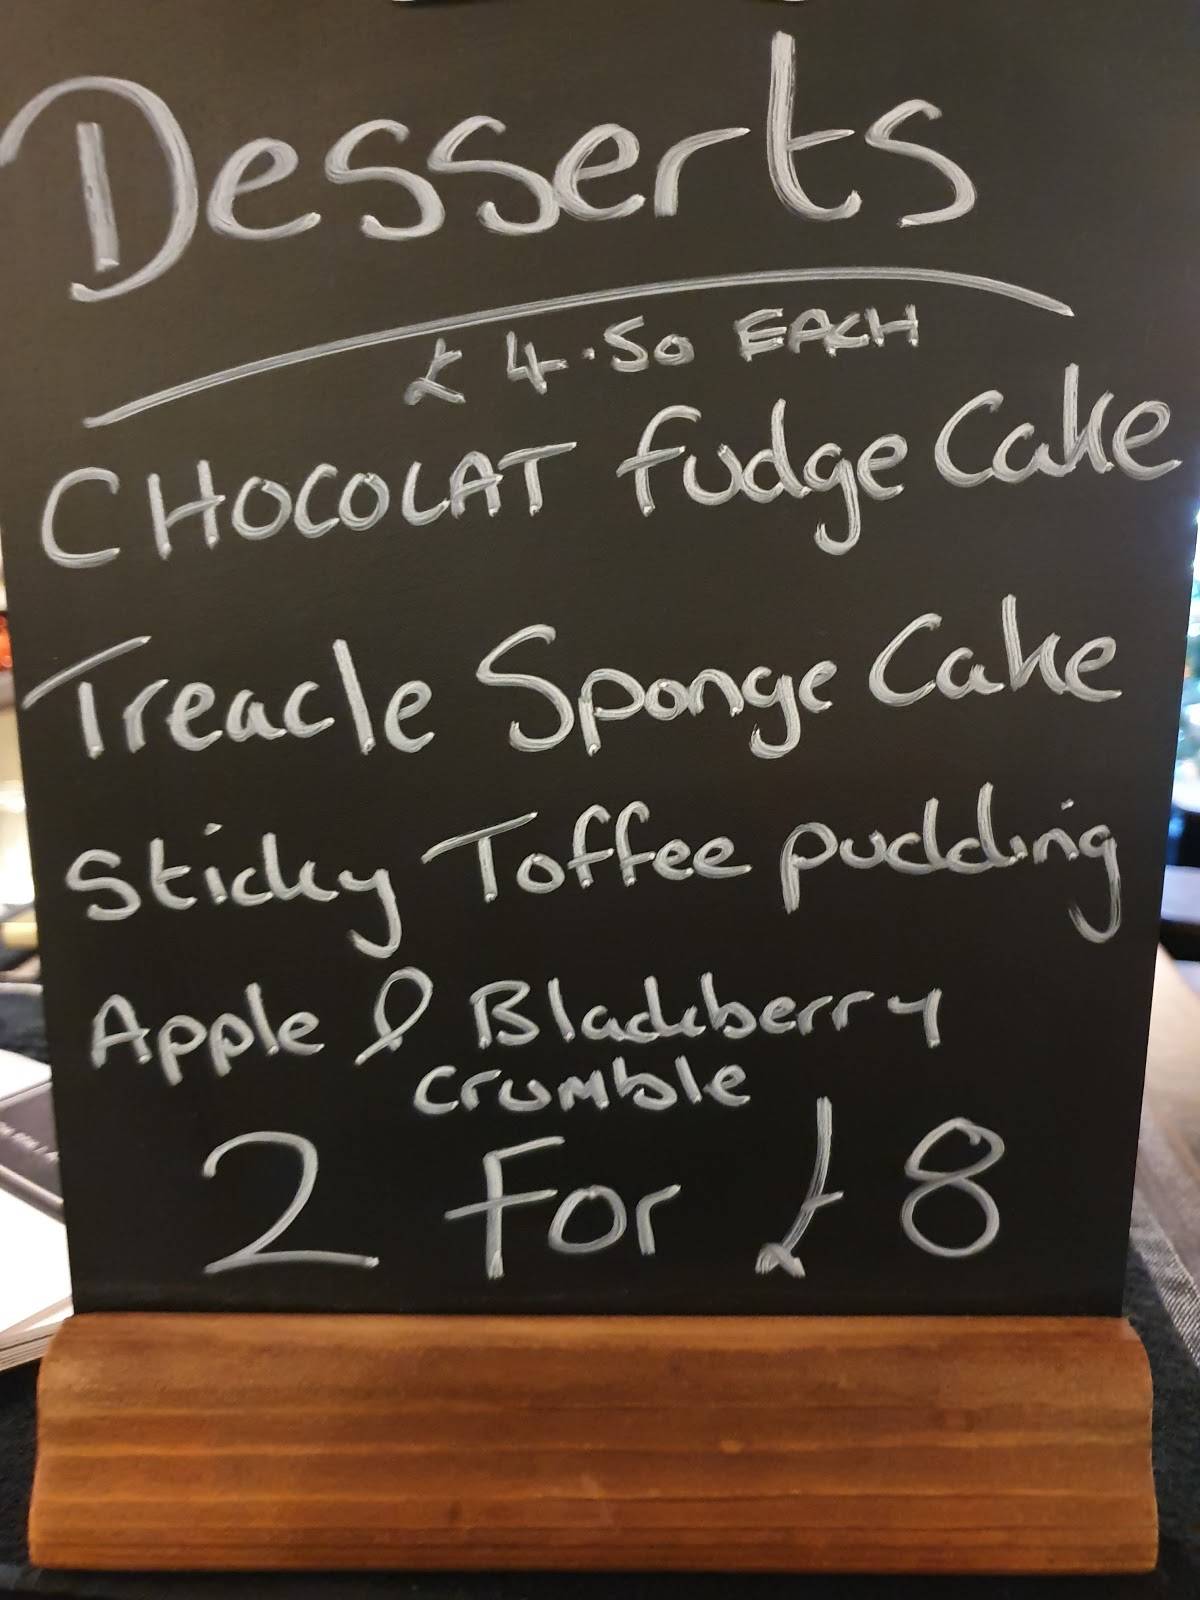 Desserts
£4.50 EACH
CHOCOLAT fudge Cake
Treacle Sponge Cake
Sticky Toffee pudding
Apple & Blackberry
crumble
2 For £8